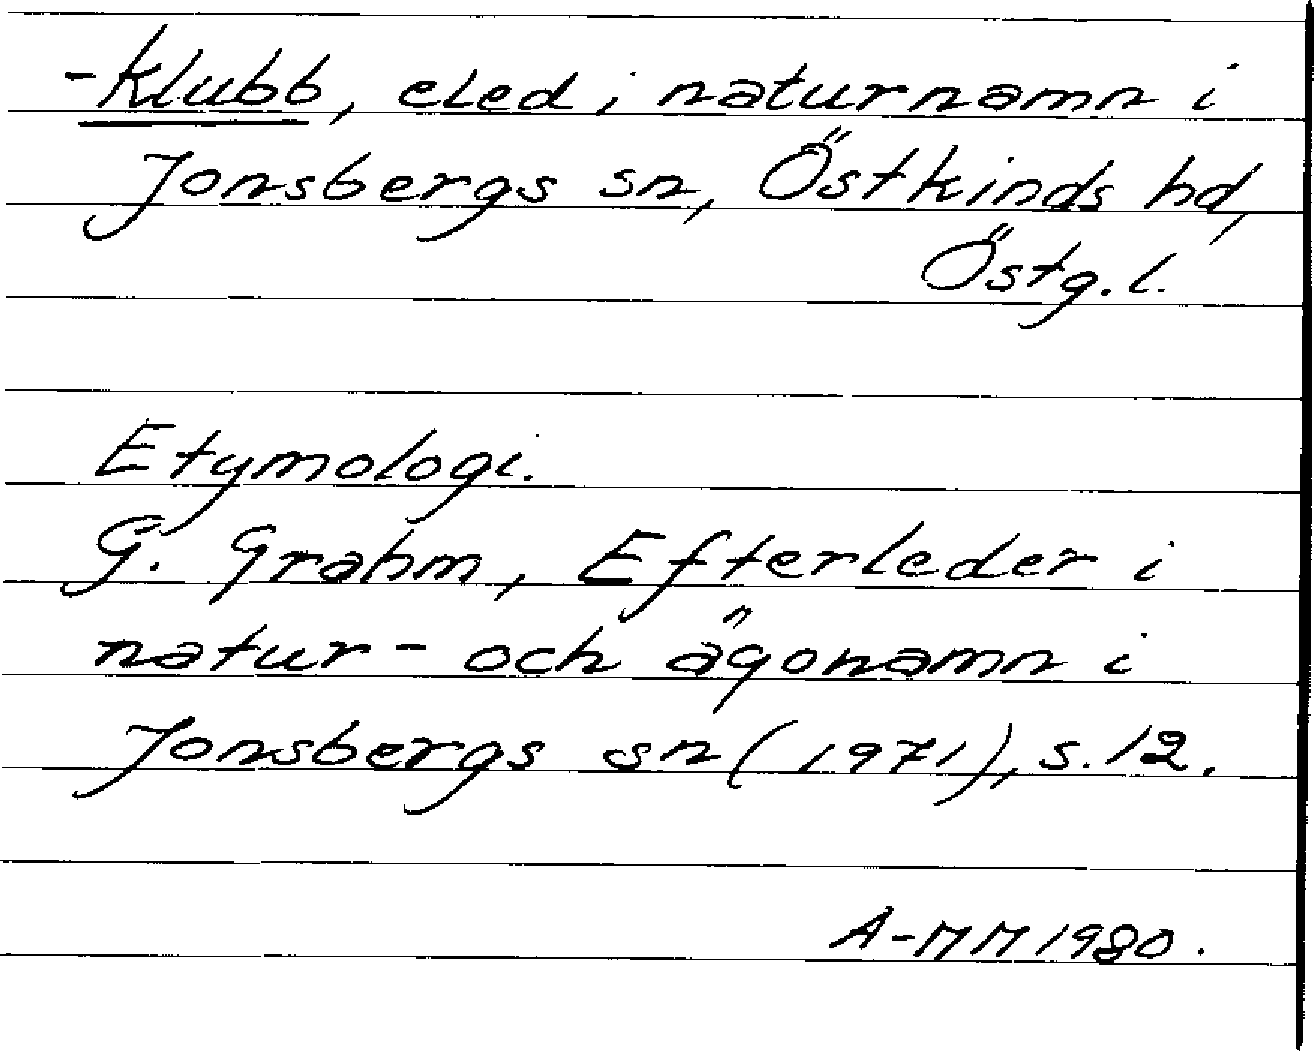 -klubb, eled i naturnamn i
Jonsbergs sn, Östkinds hd,
Östg.l.
Etymologi.
G. Grahm, Efterleder i
natur- och ägonamn i
Jonsbergs sn (1971), s. 12.
A-MM 1980.